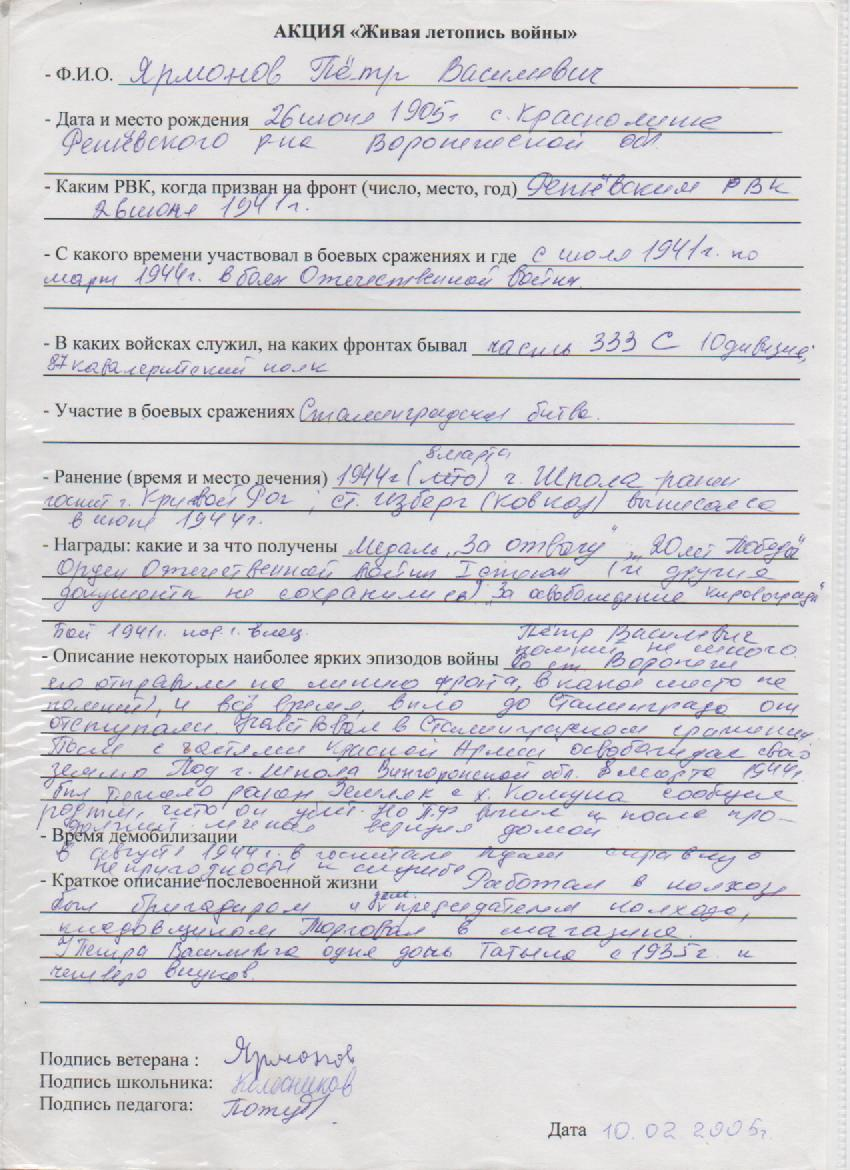 АКЦИЯ «Живая летопись войны»
- Ф.И.О. Ярмонов Пётр Василевич
- Дата и место рождения 26 июня 1905г с. Краснолипе
Репьёвского р-на Воронежской обл.
- Каким РВК, когда призван на фронт (число, место, год) Репьёвским РВК
26 июня 1941г.
- С какого времени участвовал в боевых сражениях и где с июля 1941г. по
март 1944г. в боях Отечественной войны.
- В каких войсках служил, на каких фронтах бывал часть 333 С 10 дивизия,
87 кавалерийский полк
- Участие в боевых сражениях Сталинградская битва.
8 марта
- Ранение (время и место лечения) 1944г ( ) г. Шпола ранен
госпит г. Кривой Рог ; ст. Изберг (Кавказ) выписался
в июне 1944г.
- Награды: какие и за что получены Медаль „За отвагу" „20 лет Победы"
Орден Отечественной войны I степени (и другие
документы не сохранились) „За освобождение Кировограда"
Бой 1941г. под г.
Пётр Василевич
помнит не много.
- Описание некоторых наиболее ярких эпизодов войны Воронежа
его отправили на линию фронта, в какое место не
помнит), и всё время, было до Сталинграда они
отступали. Участвовал в Сталинградском сражении
После с частями Красной Армии освобождал свою
землю Под г. Шпола обл. 8 марта 1944г.
был тяжело ранен Земляк с х. Комуна сообщил
родным, что он убит. Но П.В. выжил и после про-
должит. лечения вернулся домой
- Время демобилизации
в августе 1944г. в госпитале дали справку о
непригодности к службе
- Краткое описание послевоенной жизни Работал в колхозе
зам.
был бригадиром и председателем колхоза,
кладовщиком Торговал в магазине.
У Петра Василевича одна дочь Татьяна с 1935г. и
четверо внуков.
Подпись ветерана : Ярмонов
Подпись школьника: Колесников
Подпись педагога:
Дата 10.02 2005г.